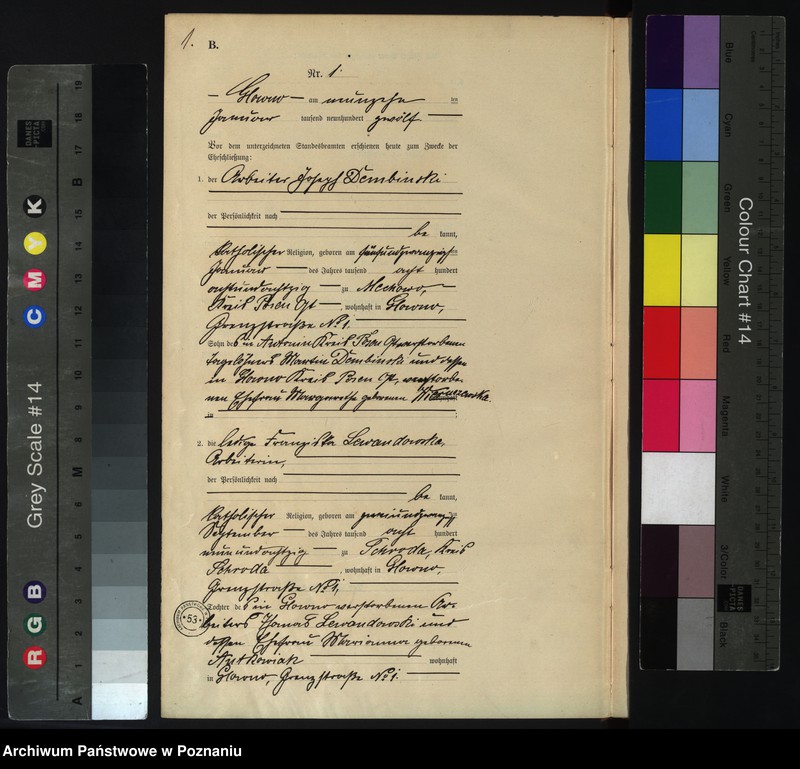 1. B.
Nr. 1
— Glowno — am neunzehn ten
Januar tausend neunhundert zwölf —
Vor dem unterzeichneten Standesbeamten erschienen heute zum Zwecke der
Eheschließung:
1. der Arbeiter Joseph Dembinski
der Persönlichkeit nach
be kannt,
katholischer Religion, geboren am fünfundzwanzigsten
Januar — des Jahres tausend acht hundert
achtundachtzig — zu
Kreis Posen Ost —, wohnhaft in Glowno,
Grenzstraße No 1.
Sohn des in Antonin Kreis Posen Ost verstorbenen
Tagelöhners Martin Dembinski und dessen
in Glowno Kreis Posen Ost, verstorbe-
nen Ehefrau Margarethe geborenen
in
2. die ledige Franziska Lewandowska,
Arbeiterin,
der Persönlichkeit nach
be kannt,
katholischer Religion, geboren am zweiundzwanzigsten
September — des Jahres tausend acht hundert
neunundachtzig — zu Schroda, Kreis
Schroda —, wohnhaft in Glowno,
Grenzstraße No 1,
Tochter des in Glowno verstorbenen Ar-
beiters Thomas Lewandowski und
dessen Ehefrau Marianna geborenen
Antkowiak — wohnhaft
in Glowno, Grenzstraße No 1. —
53
Grey Scale #14
R G B M C Y K
A 1 2 3 4 5 6 M 8 9 10 11 12 13 14 15 B 17 18 19
DANES PICTA
Colour Chart #14
Blue
Cyan
Green
Yellow
Red
Magenta
White
3/Color
Black
DANES PICTA
Archiwum Państwowe w Poznaniu